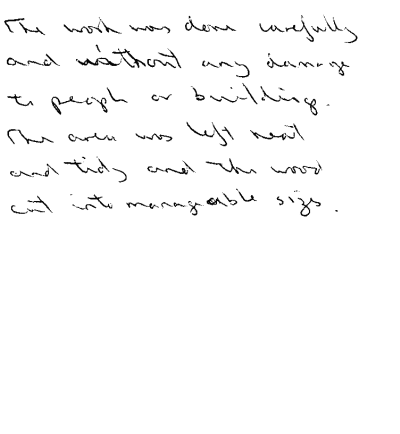 The work was done carefully
and without any damage
to people or building.
The area was left neat
and tidy and the wood
cut into manageable sizes.